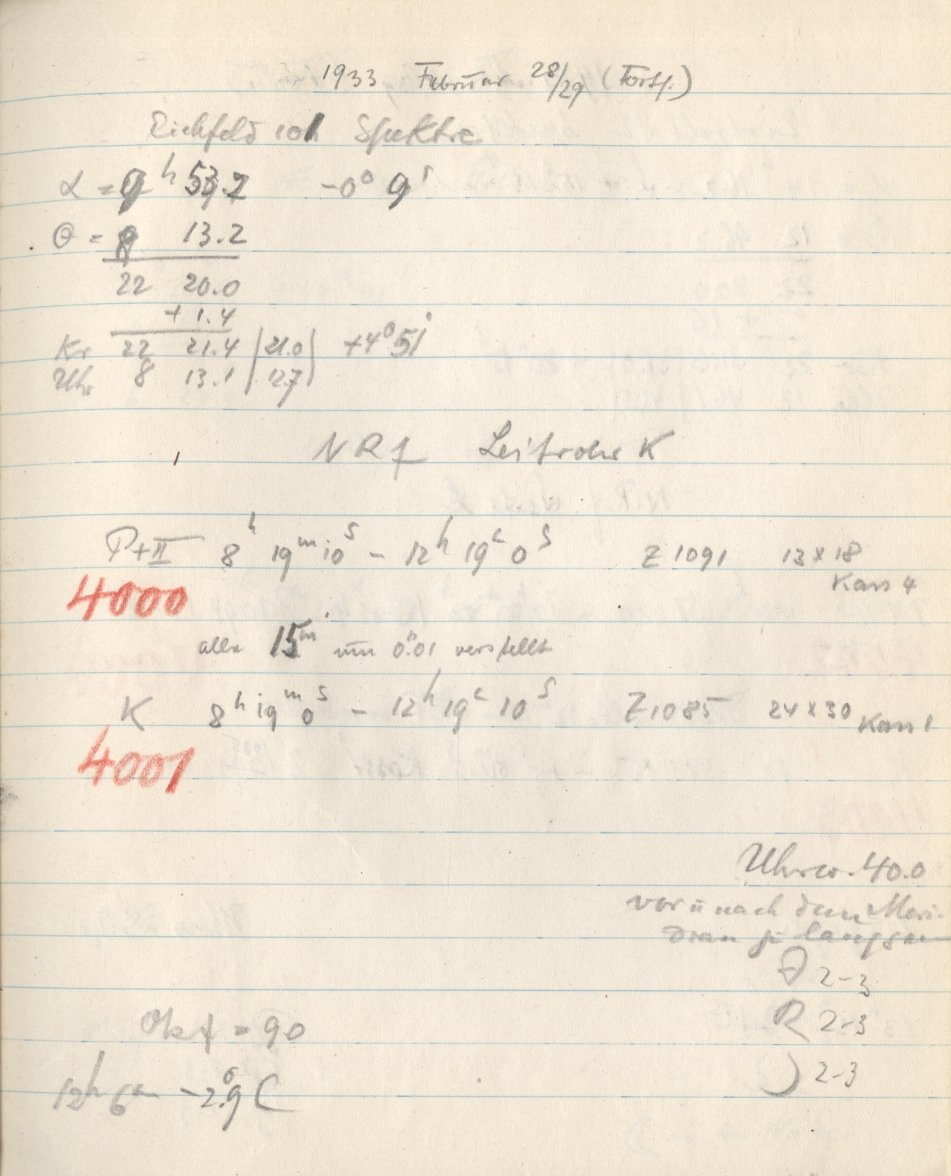 1933 Februar 28/29 (Forts.)
Eichfeld 101 Spektre
α = 9ʰ 53.2 -0° 9'
θ = 8 13.2
22 20.0
+ 1.4
Kr 22 21.4 (21.0) +4° 51'
Uhr 8 13.1 (12.7)
NRf Leitrohr K
P+II 8ʰ 19ᵐ 10ˢ – 12ʰ 19ᵐ 0ˢ Z 1091 13 x 18
Kass 4
4000
alle 15ᵐ um 0.01 verstellt
K 8ʰ 19ᵐ 0ˢ – 12ʰ 19ᵐ 10ˢ Z 1085 24 x 30 Kass 1
4001
Uhrw. 40.0
vor u nach dem Meri-
dian zu langsam
2-3
R 2-3
2-3
= 90
12ʰ 6ᵐ -2°.9 C